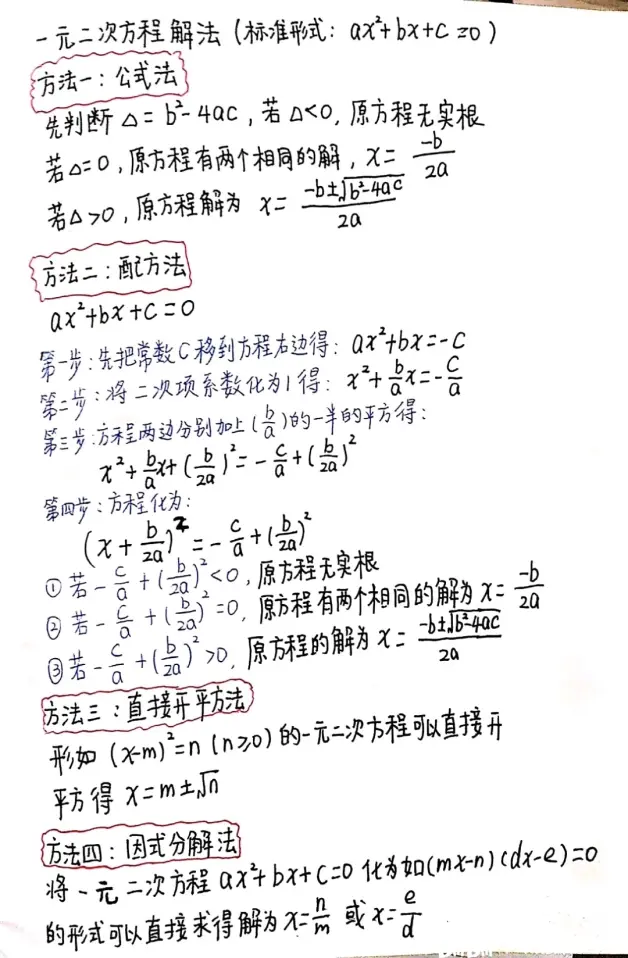 一元二次方程解法（标准形式：ax²+bx+c=0）
方法一：公式法
先判断△=b²-4ac，若△<0，原方程无实根
若△=0，原方程有两个相同的解，x=-b/2a
若△>0，原方程解为 x=(-b±√(b²-4ac))/2a
方法二：配方法
ax²+bx+c=0
第一步：先把常数C移到方程右边得：ax²+bx=-c
第二步：将二次项系数化为1得：x²+b/a x=-c/a
第三步：方程两边分别加上(b/a)的一半的平方得：
x²+b/a x+(b/2a)²=-c/a+(b/2a)²
第四步：方程化为：
(x+b/2a)²=-c/a+(b/2a)²
①若-c/a+(b/2a)²<0，原方程无实根
②若-c/a+(b/2a)²=0，原方程有两个相同的解为x=-b/2a
③若-c/a+(b/2a)²>0，原方程的解为x=(-b±√(b²-4ac))/2a
方法三：直接开平方法
形如(x-m)²=n (n≥0)的一元二次方程可以直接开
平方得 x=m±√n
方法四：因式分解法
将一元二次方程ax²+bx+c=0化为如(mx-n)(dx-e)=0
的形式可以直接求得解为x=n/m 或x=e/d